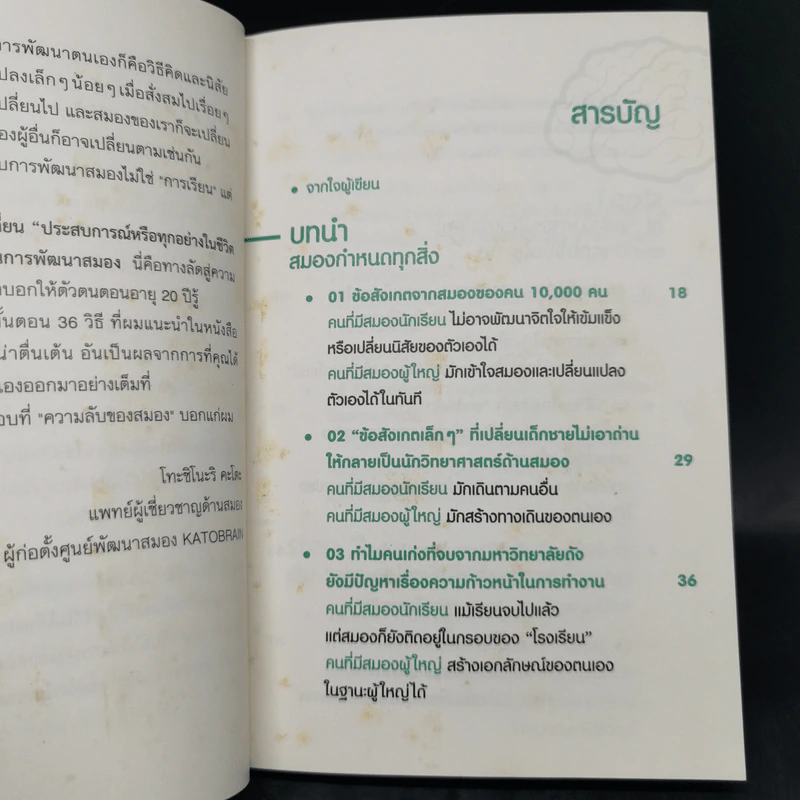 การพัฒนาตนเองก็คือวิธีคิดและนิสัย
ปลงเล็กๆ น้อยๆ เมื่อสั่งสมไปเรื่อยๆ
ปลี่ยนไป และสมองของเราก็จะเปลี่ยน
องผู้อื่นก็อาจเปลี่ยนตามเช่นกัน
บการพัฒนาสมองไม่ใช่ "การเรียน" แต่
ี่ยน "ประสบการณ์หรือทุกอย่างในชีวิต
นการพัฒนาสมอง นี่คือทางลัดสู่ความ
บอกให้ตัวตนตอนอายุ 20 ปีรู้
ั้นตอน 36 วิธี ที่ผมแนะนำในหนังสือ
น่าตื่นเต้น อันเป็นผลจากการที่คุณได้
เองออกมาอย่างเต็มที่
อบที่ "ความลับของสมอง" บอกแก่ผม
โทะชิโนะริ คะโตะ
แพทย์ผู้เชี่ยวชาญด้านสมอง
ผู้ก่อตั้งศูนย์พัฒนาสมอง KATOBRAIN
สารบัญ
• จากใจผู้เขียน
บทนำ
สมองกำหนดทุกสิ่ง
• 01 ข้อสังเกตจากสมองของคน 10,000 คน 18
คนที่มีสมองนักเรียน ไม่อาจพัฒนาจิตใจให้เข้มแข็ง
หรือเปลี่ยนนิสัยของตัวเองได้
คนที่มีสมองผู้ใหญ่ มักเข้าใจสมองและเปลี่ยนแปลง
ตัวเองได้ในทันที
• 02 "ข้อสังเกตเล็กๆ" ที่เปลี่ยนเด็กชายไม่เอาถ่าน
ให้กลายเป็นนักวิทยาศาสตร์ด้านสมอง 29
คนที่มีสมองนักเรียน มักเดินตามคนอื่น
คนที่มีสมองผู้ใหญ่ มักสร้างทางเดินของตนเอง
• 03 ทำไมคนเก่งที่จบจากมหาวิทยาลัยดัง
ยังมีปัญหาเรื่องความก้าวหน้าในการทำงาน 36
คนที่มีสมองนักเรียน แม้เรียนจบไปแล้ว
แต่สมองก็ยังติดอยู่ในกรอบของ "โรงเรียน"
คนที่มีสมองผู้ใหญ่ สร้างเอกลักษณ์ของตนเอง
ในฐานะผู้ใหญ่ได้